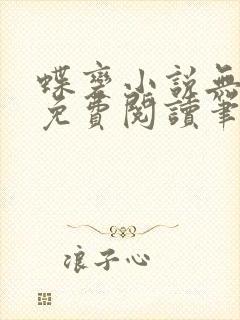 蝶变小説無
免費閱讀筆
浪子心